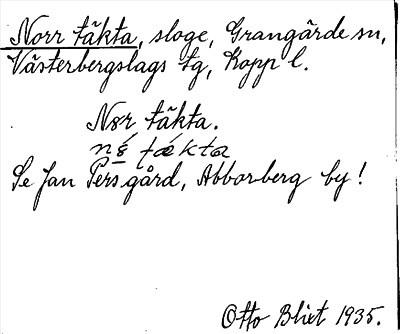 Norr täkta, sloge, Grangärde sn,
Västerbergslags tg, Kopp l.
Nør täkta.
Se Jan Persgård, Abborberg by!
Otto Blixt 1935.